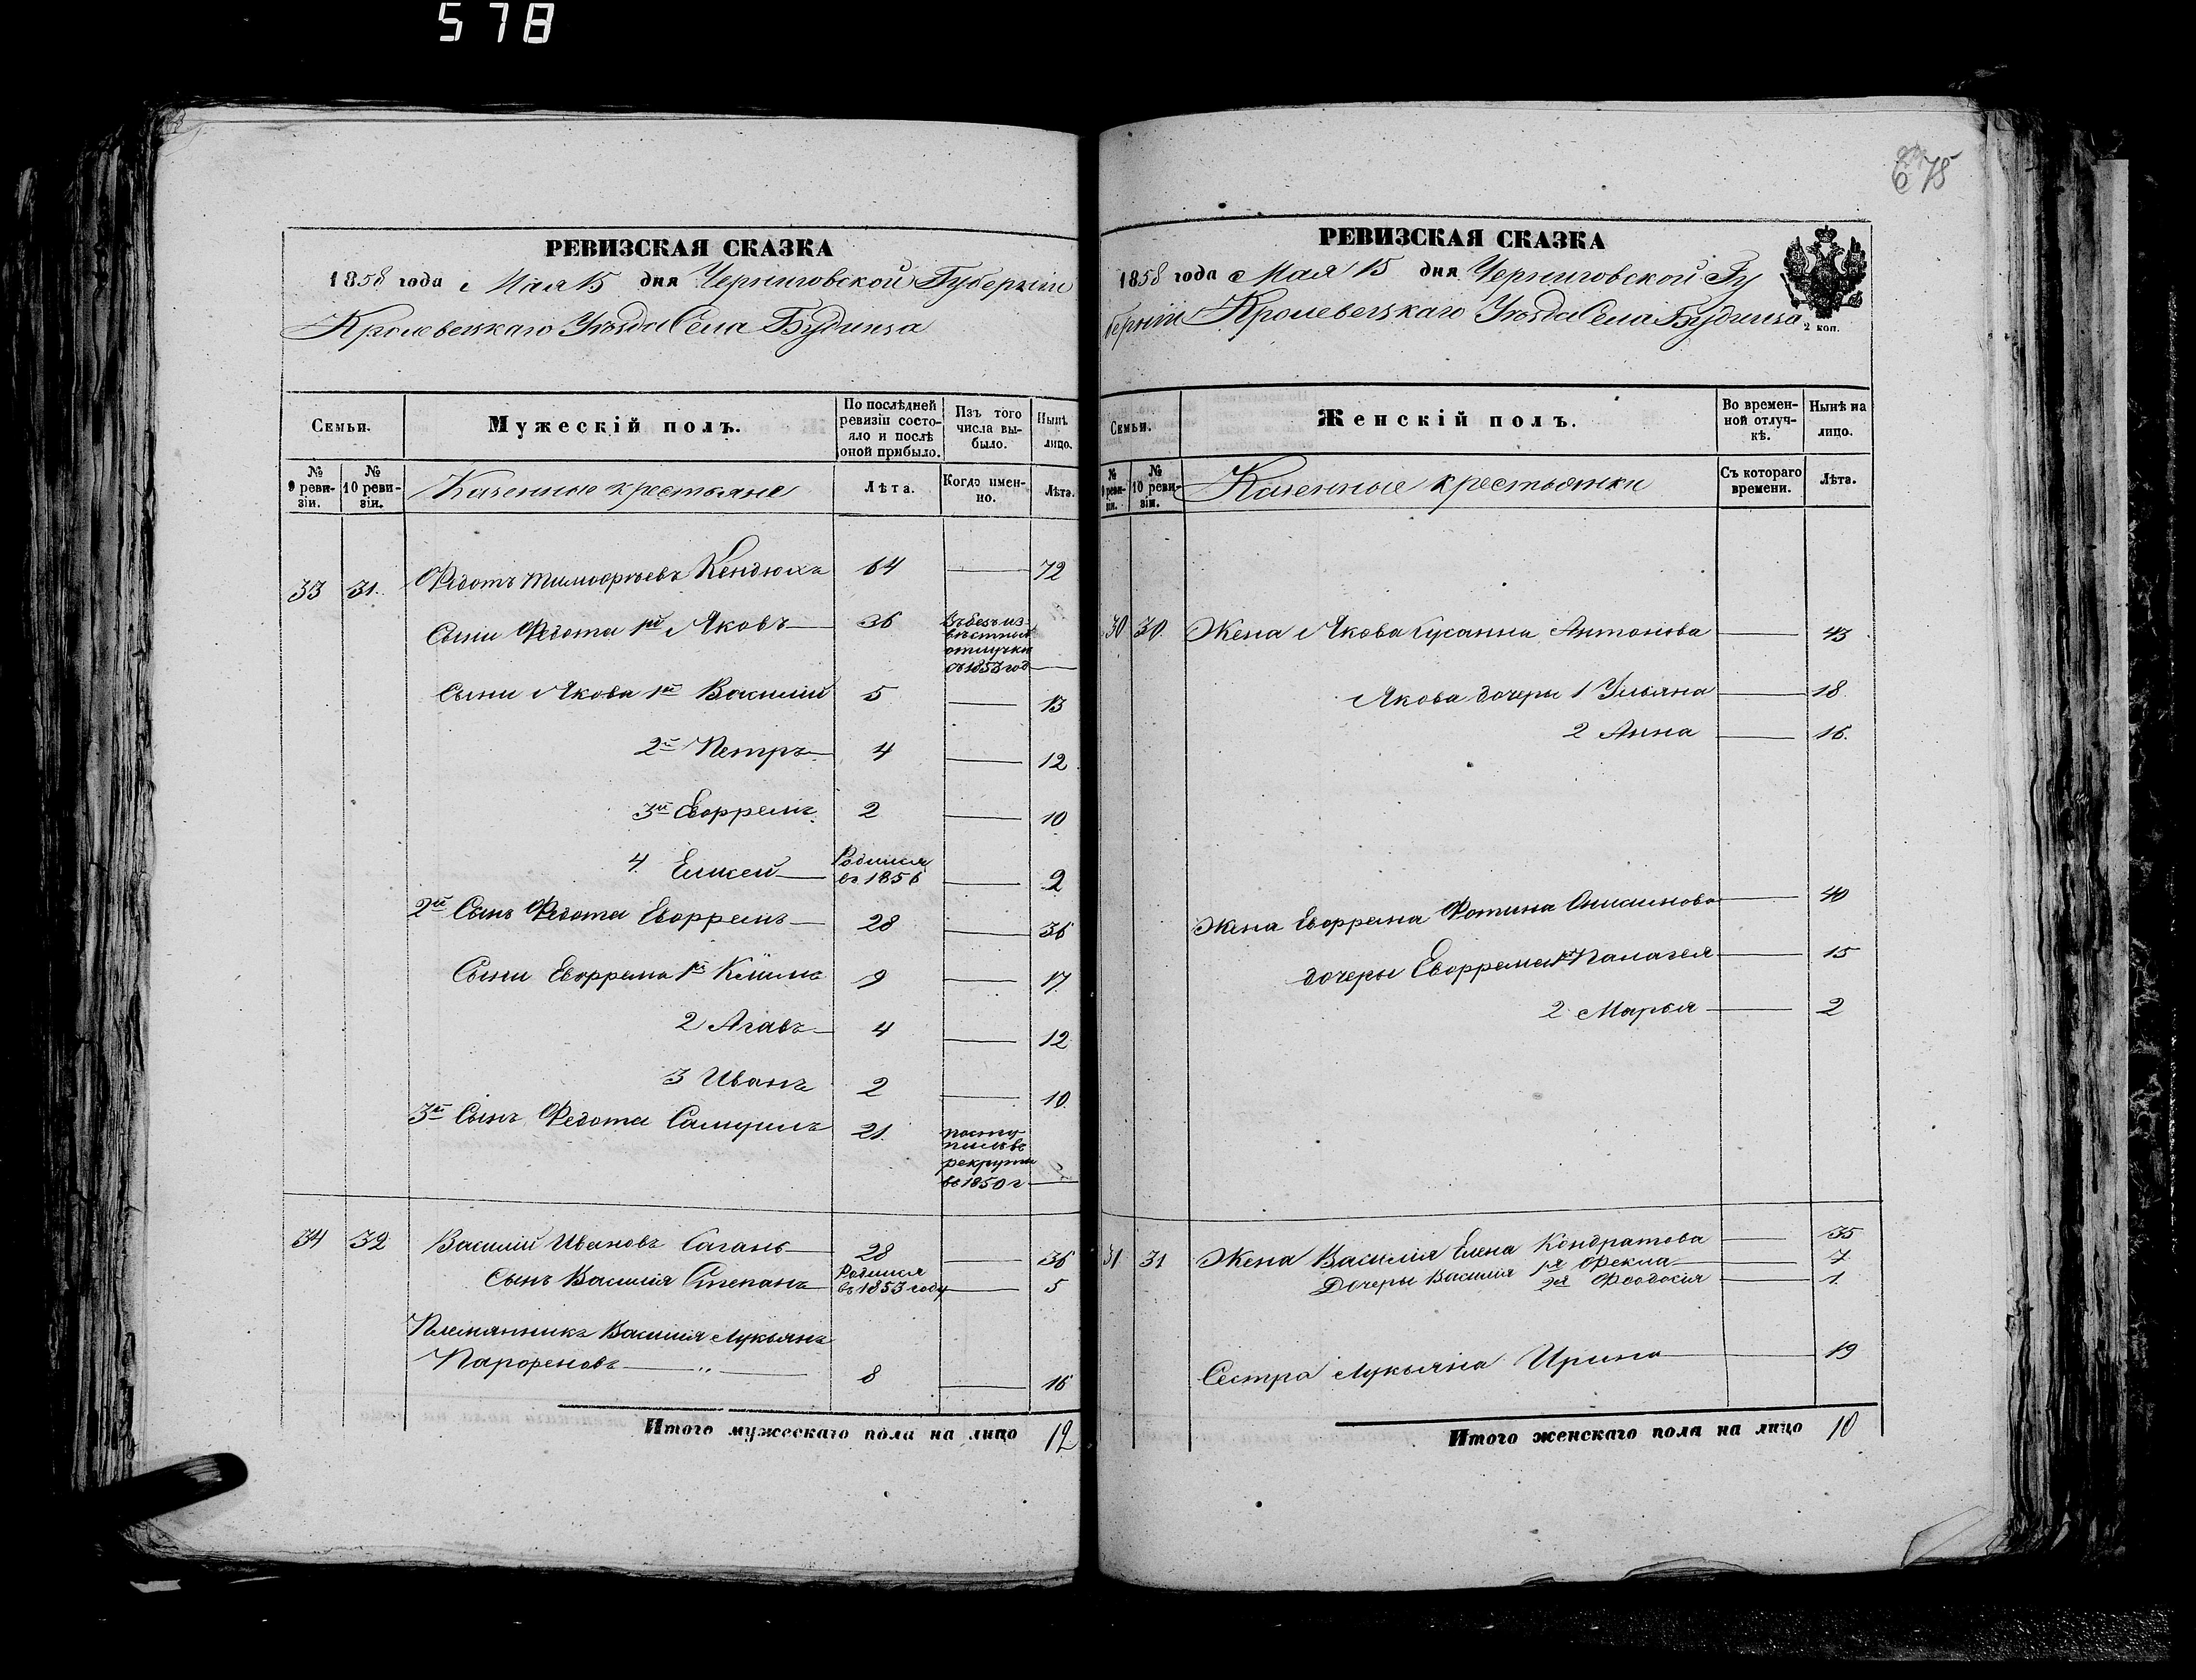 578
78
РЕВИЗСКАЯ СКАЗКА
1858 года Мая 15 дня Черниговской Губерніи
Кролевецкаго Уѣзда Села Будища
Семьи.
Мужескій полъ.
По послѣдней ревизіи состояло и послѣ оной прибыло.
Изъ того числа выбыло.
Нынѣ лицо.
№ 9 ревизіи.
№ 10 ревизіи.
Казенные крестьяне
Лѣта.
Когда именно.
Лѣта.
33 31. Федотъ Тимофѣевъ Кендюхъ 64 — 72
Сыни Федота 1й Яковъ 36 Въ безъизвѣстной отлучки съ 1853 год —
Сыни Якова 1й Василій 5 — 13
2й Петръ 4 — 12
3й Евфремъ 2 — 10
4. Елисей Родился въ 1856 — 2
2й Сынъ Федота Евфремъ 28 — 36
Сыни Евфрема 1й Климъ 9 — 17
2 Агавъ 4 — 12
3 Иванъ 2 — 10
3й Сынъ Федота Самуилъ 21. поступилъ въ рекруты въ 1850 г —
34 32 Василій Ивановъ Саганъ 28 — 36
Сынъ Василія Степанъ Родился въ 1853 году — 5
Племянникъ Василія Лукьянъ
Парфеновъ — „ — 8 — 16
Итого мужескаго пола на лицо 12
РЕВИЗСКАЯ СКАЗКА
1858 года Мая 15 дня Черниговской Гу
берніи Кролевецкаго Уѣзда Села Будища
2 коп.
Семьи.
Женскій полъ.
Во временной отлучкѣ.
Нынѣ на лицо.
№ 9 ревизіи.
№ 10 ревизіи.
Казенные крестьянки
Съ котораго времени.
Лѣта.
30 30. Жена Якова Сусанна Антонова — 43
Якова дочери 1 Ульяна — 18
2 Анна — 16.
Жена Евфрема Фотина Онисимова — 40
дочеры Евфрема 1я Палагея — 15
2 Марья — 2
31 31 Жена Василія Елена Кондратова — 35
Дочеры Василія 1я Фекла — 7
2я Феодосія — 1.
Сестра Лукьяна Ирина — 19
Итого женскаго пола на лицо 10